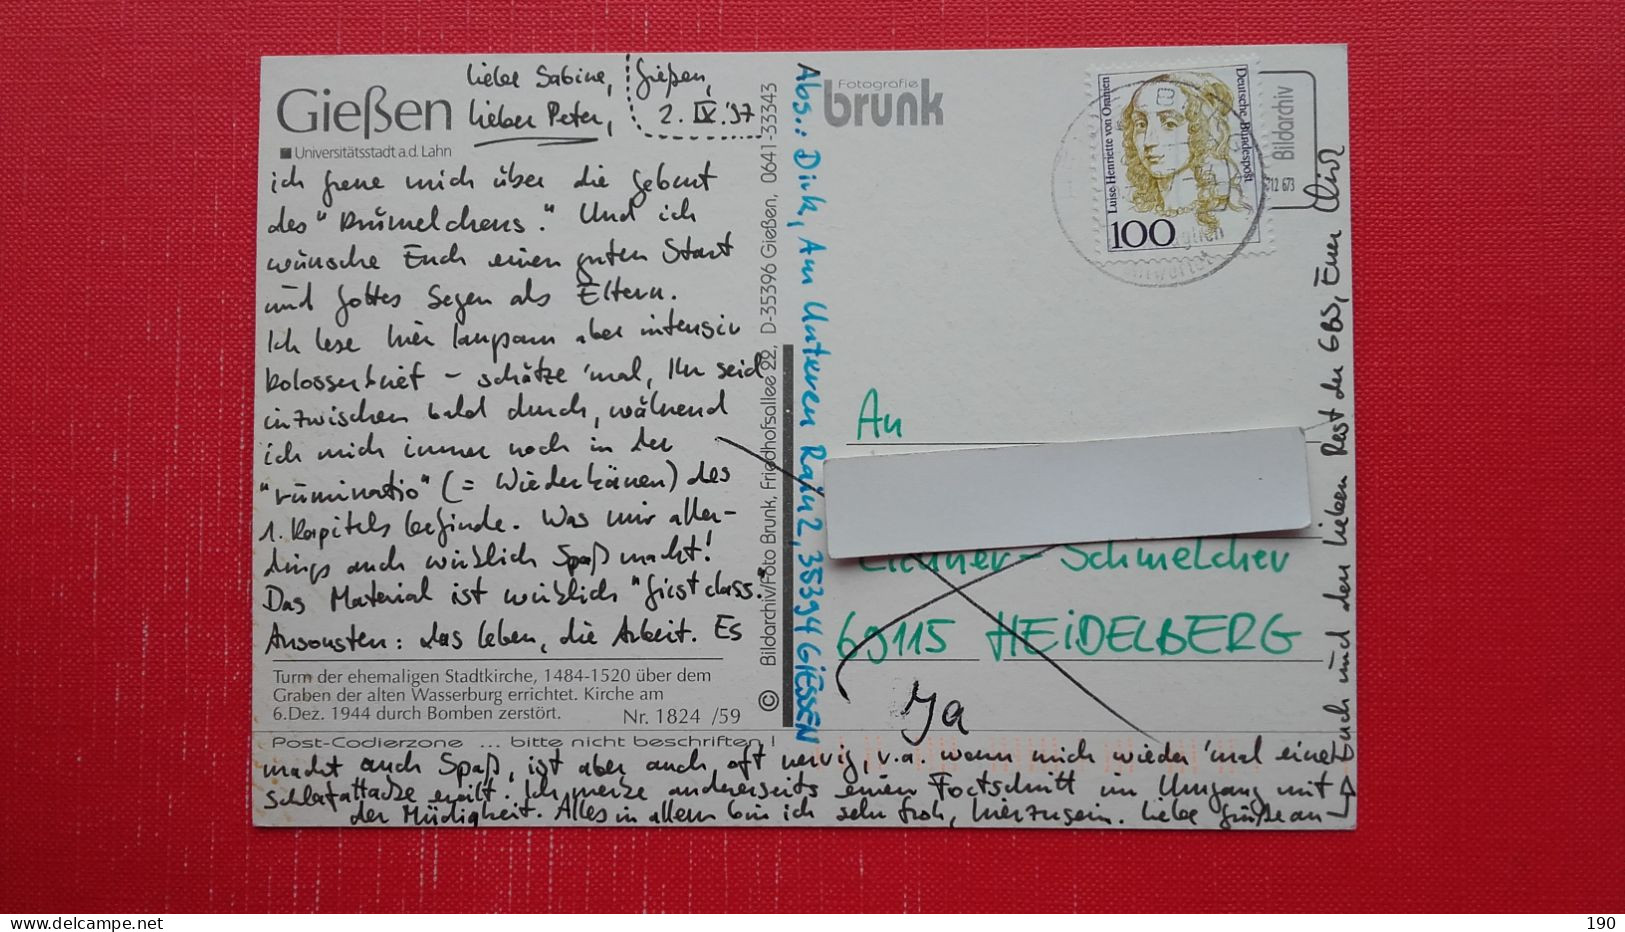 Gießen
Universitätsstadt a.d. Lahn
liebe Sabine,
lieber Peter,
Gießen,
2. IX. '97
ich freue mich über die Geburt
des "Krümelchens." Und ich
wünsche Euch einen guten Start
und Gottes Segen als Eltern.
Ich lese hier langsam aber intensiv
Kolosserbrief – schätze 'mal, Ihr seid
inzwischen bald durch, während
ich mich immer noch in der
"ruminatio" (= Wiederkäuen) des
1. Kapitels befinde. Was mir aller-
dings auch wirklich Spaß macht!
Das Material ist wirklich "first class."
Ansonsten: das Leben, die Arbeit. Es
Turm der ehemaligen Stadtkirche, 1484-1520 über dem
Graben der alten Wasserburg errichtet. Kirche am
6.Dez. 1944 durch Bomben zerstört.
Nr. 1824 /59
Post-Codierzone ... bitte nicht beschriften !
macht auch Spaß, ist aber auch oft nervig, v.a. wenn mich wieder 'mal eine
Schlafattacke ereilt. Ich merke andererseits einen Fortschritt im Umgang mit
der Müdigkeit. Alles in allem bin ich sehr froh, hier zu sein. Liebe Grüße an
Euch und den lieben Rest der GBS, Euer Dirk
© Bildarchiv/Foto Brunk, Friedhofsallee 22, D-35396 Gießen, 0641-33343
Abs.: Dirk, Am Unteren Rain 2, 35394 GIESSEN
Fotografie
brunk
Luise Henriette von Oranien
Deutsche Bundespost
100
Bildarchiv
212 673
An
Schmelcher
69115 HEIDELBERG
Ja
190